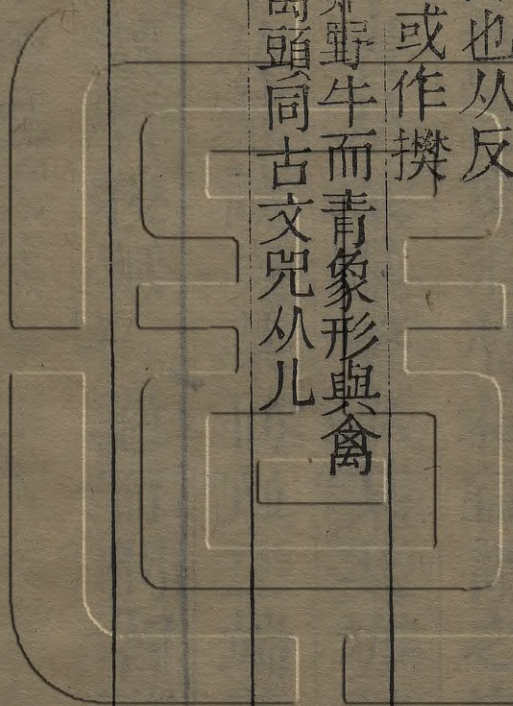 也从反
或作㩥
野牛而青象形與禽
头同古文兕从儿